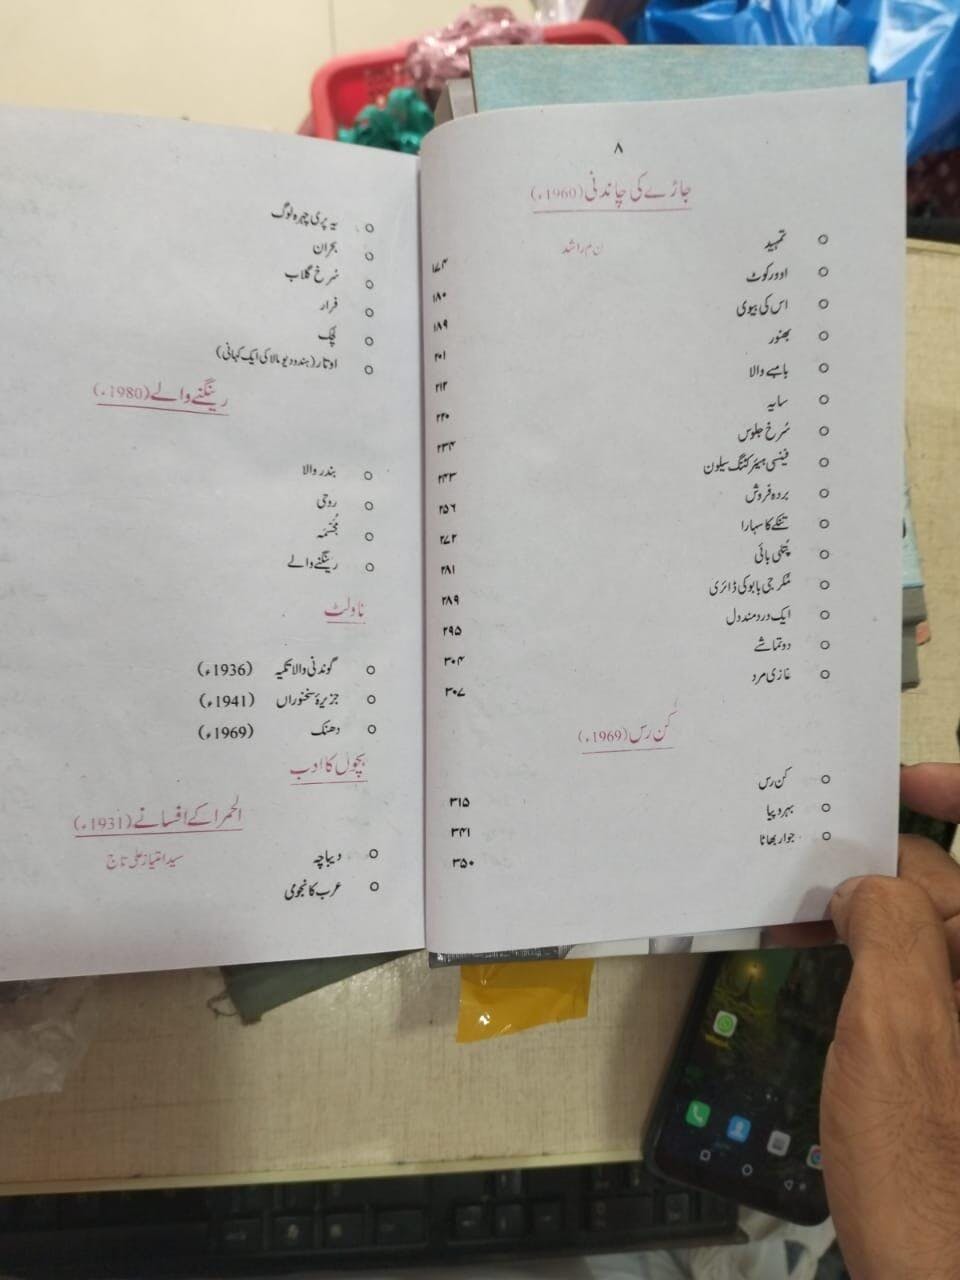 ۸
جاڑے کی چاندنی (1960ء)
تمہید ن م راشد ۱۷۴
اوورکوٹ ۱۸۰
اس کی بیوی ۱۸۹
بھنور ۲۰۱
بامبے والا ۲۱۲
سایہ ۲۲۰
سُرخ جلوس ۲۳۴
فینسی ہیئر کٹنگ سیلون ۲۴۳
بردہ فروش ۲۵۶
تنکے کا سہارا ۲۷۲
پُتلی بائی ۲۸۱
مُکرجی بابو کی ڈائری ۲۸۹
ایک دردمند دل ۲۹۵
دو تماشے ۳۰۴
غازی مرد ۳۰۷
کن رس (1969ء)
کن رس ۳۱۵
بہروپیا ۳۴۱
جوار بھاٹا ۳۵۰
یہ پری چہرہ لوگ
بحران
سُرخ گلاب
فرار
لچک
اوتار (ہندو دیومالا کی ایک کہانی)
رینگنے والے (1980ء)
بندر والا
روحی
مجسّمہ
رینگنے والے
ناولٹ
گوندنی والا تکیہ (1936ء)
جزیرۂ سخنوراں (1941ء)
دھنک (1969ء)
بچوں کا ادب
الحمرا کے افسانے (1931ء)
دیباچہ سید امتیاز علی تاج
عرب کا نجومی